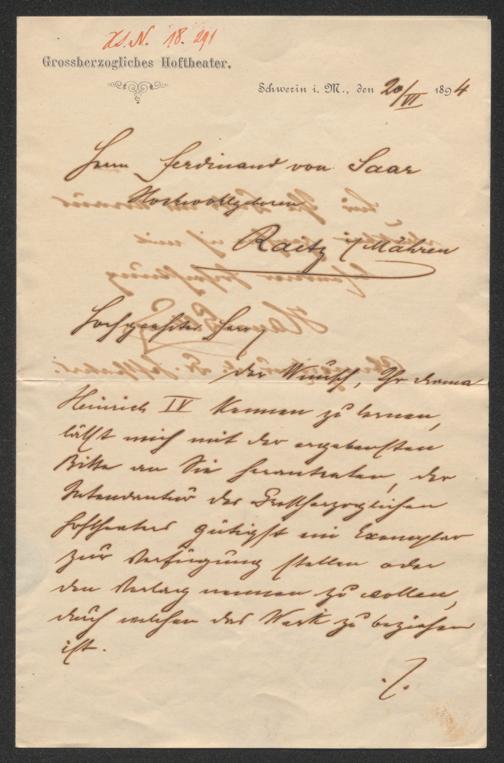 I.N. 18.291
Grossherzogliches Hoftheater.
Schwerin i. M., den 20/VI 1894
Herrn Ferdinand von Saar
Hochwohlgeboren
Raitz / Mähren
Hochgeehrter Herr,
Der Wunsch, Ihr Drama
Heinrich IV kennen zu lernen,
läßt mich mit der ergebensten
Bitte an Sie herantreten, der
Intendantur des Großherzoglichen
Hoftheaters gütigst ein Exemplar
zur Verfügung stellen oder
den Verlag nennen zu wollen,
durch welchen das Werk zu beziehen
ist.
./.